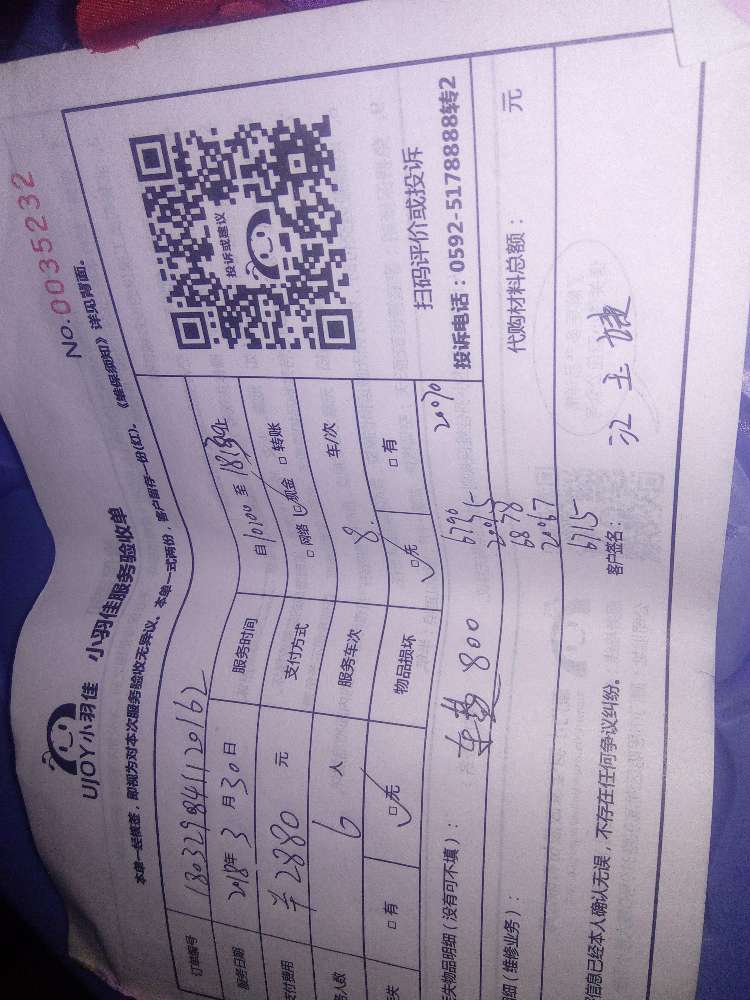 No.0035232
UJOY小羽佳 小羽佳服务验收单
本单一经核签,即视为对本次服务验收无异议、本单一式两份,客户留存一份(红)。《维保须知》详见背面。
订单编号 180329841120162
服务日期 2018年3月30日 服务时间 自10:00至18:30止
支付费用 ¥2880 元 支付方式 □网络 ☑现金 □转账
人数 6 人 服务车次 8. 车/次
失 □有 ☑无 物品损坏 ☑无 □有
投诉或建议
扫码评价或投诉
投诉电话:0592-5178888转2
失物品明细(没有可不填): 800
6790 2070
2005
细(维修业务): 6878
代购材料总额: 元
2067
6715
信息已经本人确认无误,不存在任何争议纠纷。 客户签名: